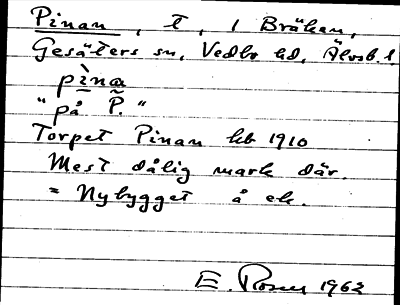 Pinan, t, i Bräkan,
Gesäters sn, Vedbo hd, Älvsb. l
pìna
"på P."
Torpet Pinan hb 1910
Mest dålig mark där.
= Nybygget å ek.
E. Rosen 1962